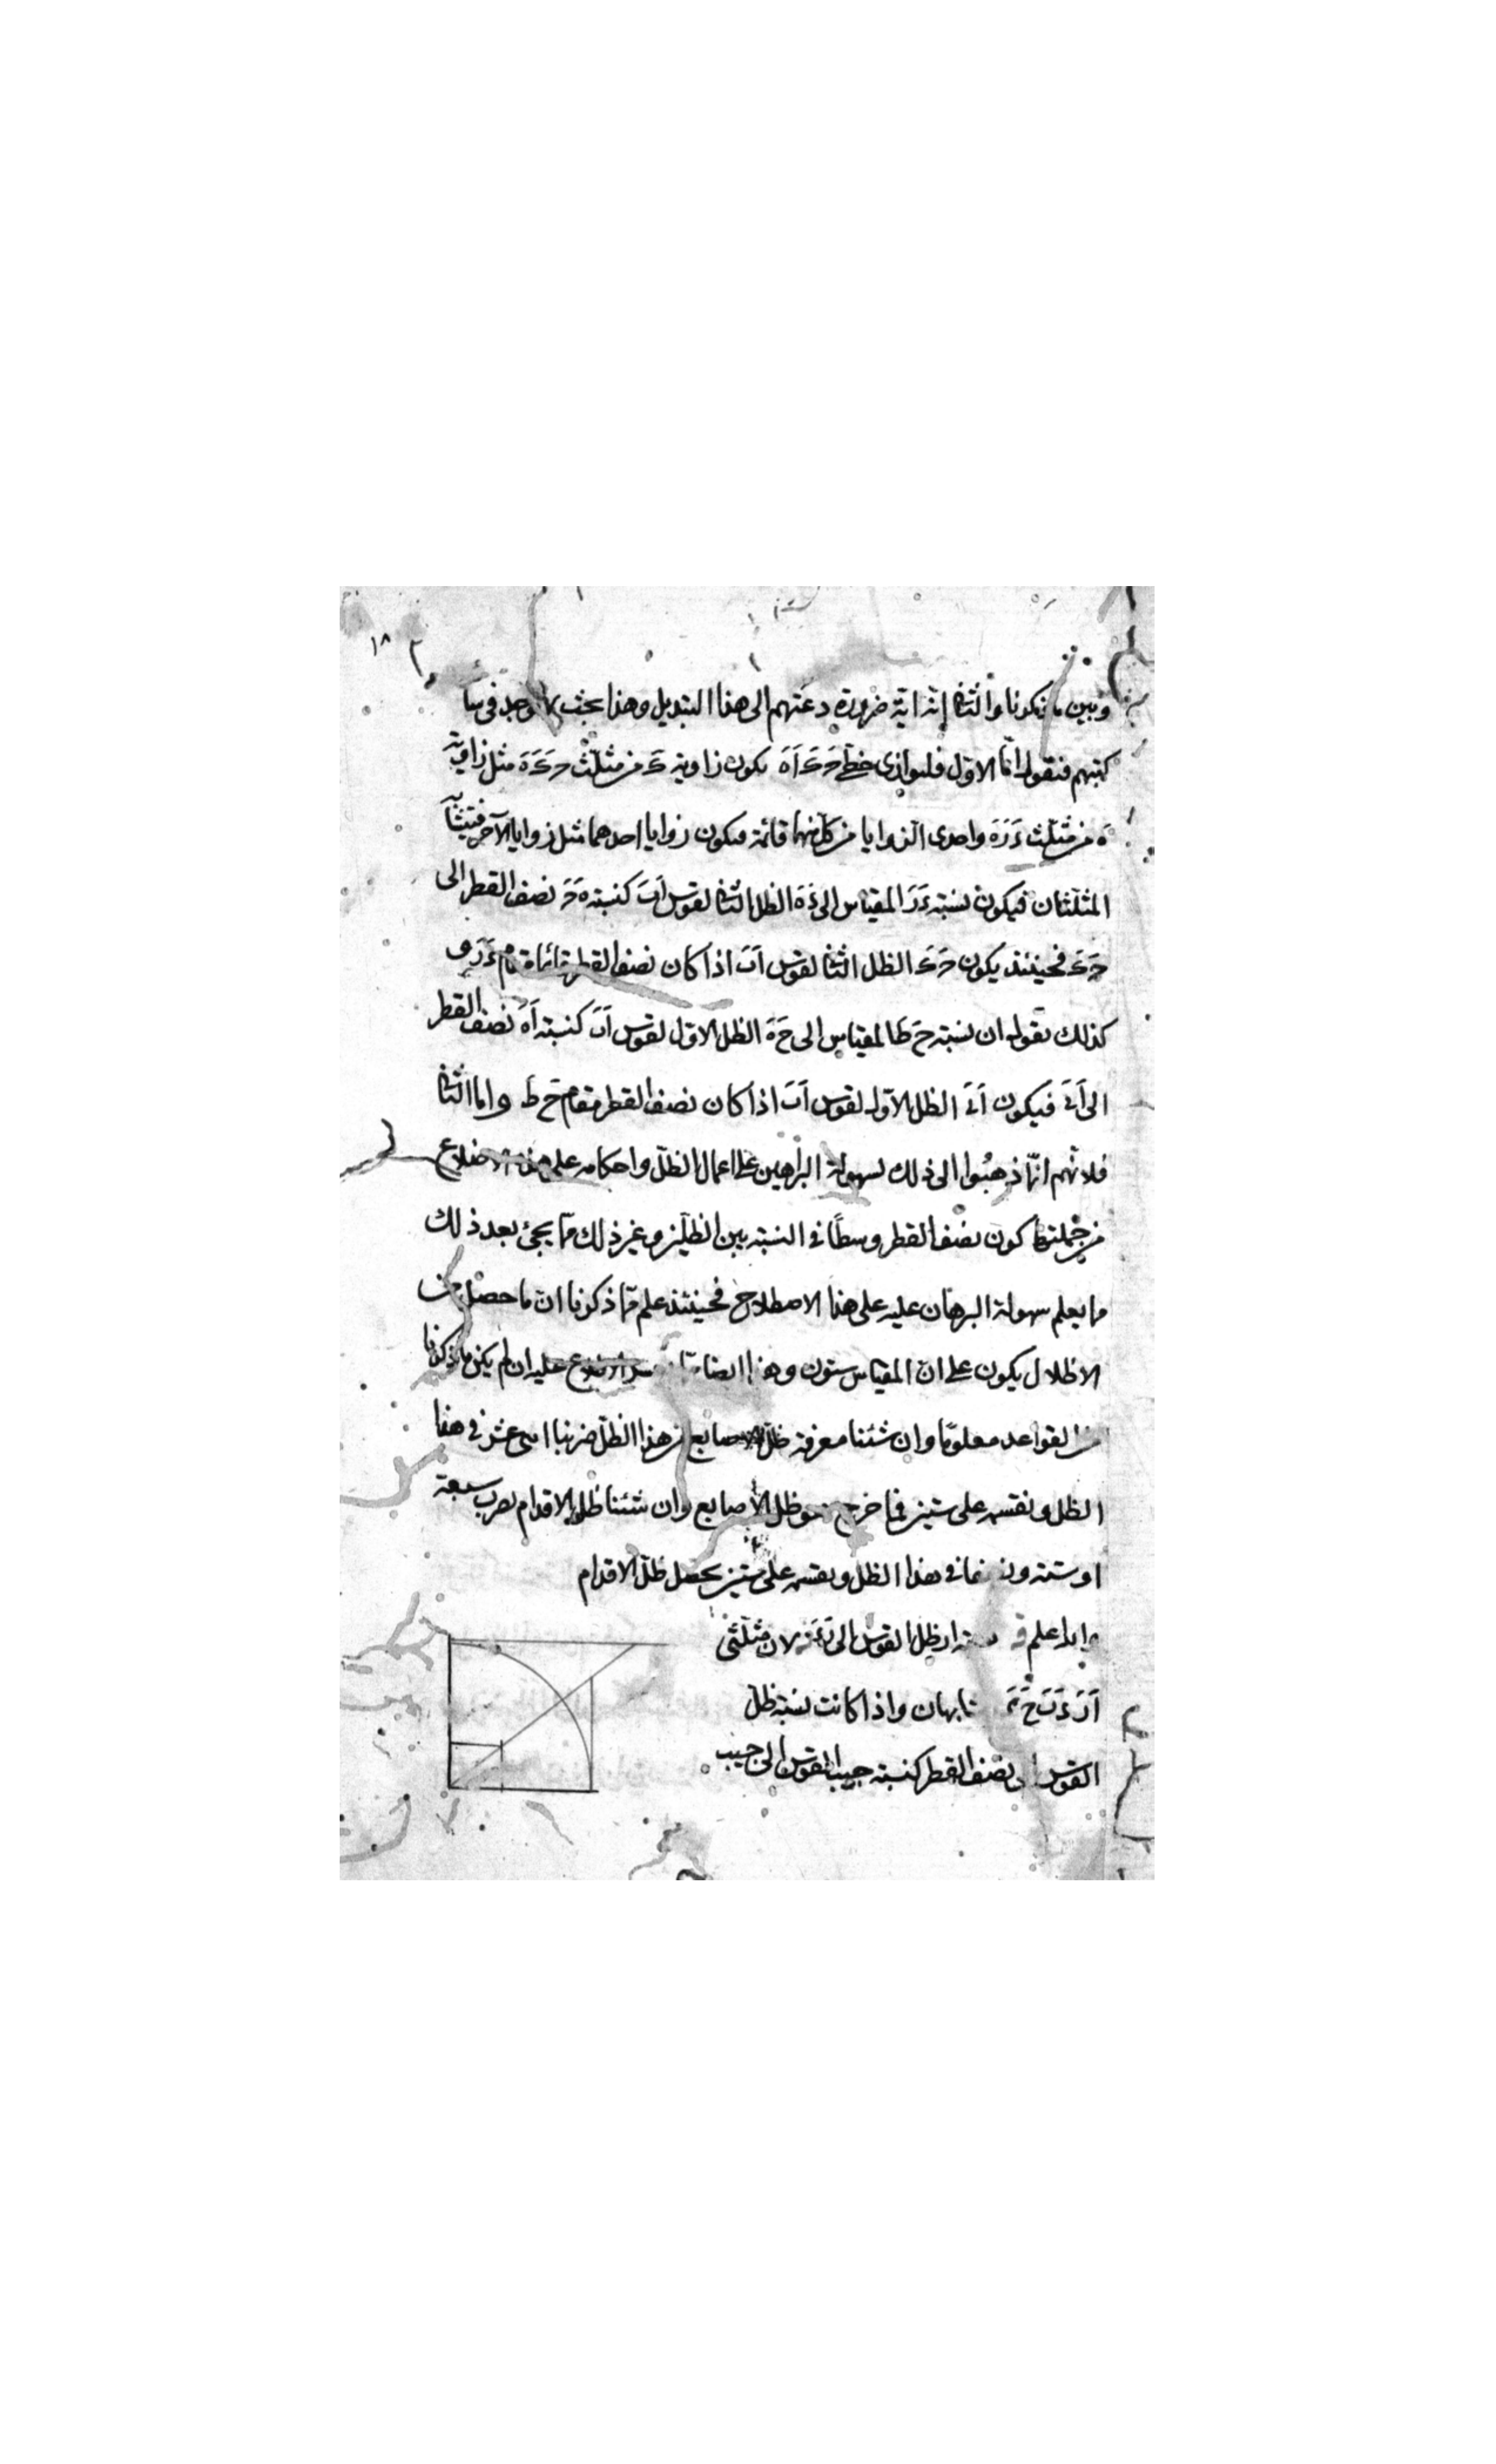 ١٨
وبين ما يكونا والثانى انه اية ضرورة دعتهم الى هذا التبديل وهذا بحث لا يوجد فى
كتبهم فنقول اما الاول فلتوازى خطى حَ ءَ اَ هَ يكون زاوية ءَ من مثلث حَ ءَ هَ مثل زاوية
هَ من مثلث ءَ زَ هَ واحدى الزوايا من كل منهما قائمة فيكون زوايا احدهما مثل زوايا الآخر
المثلثان فيكون نسبة ءَ زَ المقياس الى زَ هَ الظل الثانى لقوس اَ بَ كنسبة هَ حَ نصف القطر الى
حَ ءَ فحينئذ يكون حَ ءَ الظل الثانى لقوس اَ بَ اذا كان نصف القطر قائما مقام ءَ زَ
كذلك نقول ان نسبة حَ طَ المقياس الى حَ هَ الظل الاول لقوس اَ بَ كنسبة اَ هَ نصف القطر
الى اَ ىَ فيكون اَ ىَ الظل الاول لقوس اَ بَ اذا كان نصف القطر مقام حَ طَ واما الثانى
فلانهم انما ذهبوا الى ذلك لسهولة البراهين على اعمال الظل واحكامه على
من جملتها كون نصف القطر وسطا فى النسبة بين الظلين وغير ذلك مما يجئ بعد ذلك
ما يعلم سهولة البرهان عليه على هذا الاصطلاح فحينئذ علم مما ذكرنا ان ما حصل من
الاظلال يكون على ان المقياس ستون وهذا ايضا عليه ان لم يكن ما ذكرنا
من القواعد معلوما وان شئنا معرفة ظل الاصابع من هذا الظل ضربنا اثنى عشر فى هذا
الظل ونقسم على ستين فما خرج هو ظل الاصابع وان شئنا ظل الاقدام نضرب سبعة
او ستة ونصفا فى هذا الظل ونقسم على ستين يحصل ظل الاقدام
علم ظل القوس الى لان مثلثى
واذا كانت نسبة ظل
القوس الى نصف القطر كنسبة جيب القوس الى جيب